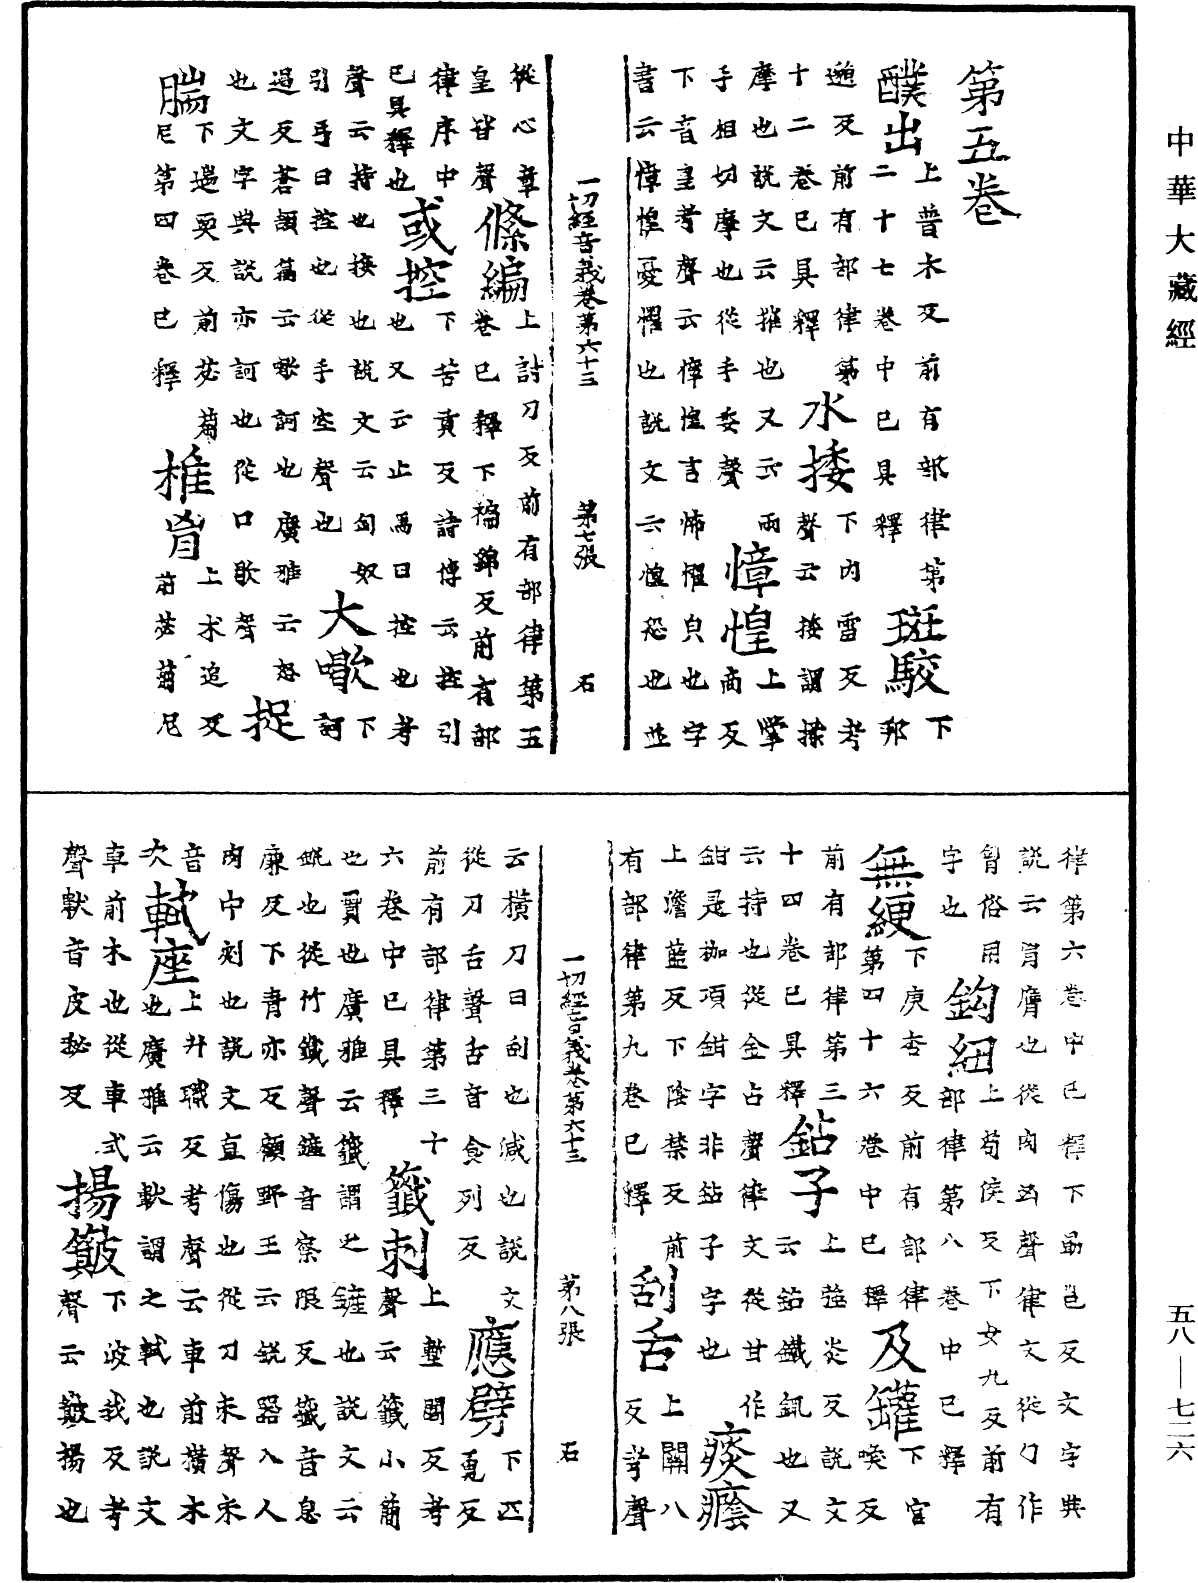 中華大藏經
第五卷
醭出上普木反前有部律第二十七卷中已具釋 斑駮下邦
邈反前有部律第十二卷已具釋 水捼下內雷反考聲云捼謂揉
摩也說文云摧也又云兩手相切摩也從手委聲 慞惶上掌商反
下音皇考聲云慞惶言怖懼皃也字
書云慞惶憂懼也說文云惶恐也並
一切經音義卷第六十三 第七張 石
從心章皇皆聲 絛編上討刀反前有部律第五卷已釋下褊綿反前有部
律序中已具釋也 或控下苦貢反詩傳云控引也又云止馬曰控也考
聲云持也捼也說文云匈奴引弓曰控也從手空聲也 大㗾下訶
過反蒼頡篇云㗾訶也廣雅云怒也文字與說亦訶也從口歇聲 捉
腨下遄耎反前苾芻尼第四卷已釋 椎胷上木追反前苾芻尼
律第六卷中已釋下勗邕反文字典
說云胷膺也從肉匈聲律文從勹作
胷俗用字也 鈎紐上苟侯反下女九反前有部律第八卷中已釋
無綆下庚杏反前有部律第四十六卷中已釋 及罐下官喚反
前有部律第三十四卷已具釋 鉆子上強炎反說文云鉆鐵鋷也又
云持也從金占聲律文從甘作鉗是枷項鉗字非鉆子字也 痰癊
上澹藍反下陰禁反前有部律第九卷已釋 刮舌上關八反考聲
一切經音義卷第六十三 第八張 石
云橫刀曰刮也減也說文從刀舌聲舌音食列反 應劈下匹覓反
前有部律第三十六卷中已具釋 籤刺上壍閻反考聲云籤小簡
也貫也廣雅云籤謂之鏟也說文云
銳也從竹韱聲鏟音察限反韱音息
廉反下青亦反顧野王云銳器入人
肉中刻也說文直傷也從刀朿聲朿
音次 軾座上升職反考聲云車前橫木也廣雅云軾謂之軾也說文
車前木也從車式聲軾音皮秘反 揚簸下波我反考聲云簸揚也
五八—七二六